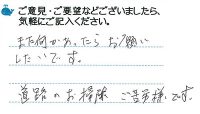 ご意見・ご要望などございましたら、
気軽にご記入ください。
また何かあったらお願い
したいです。
道路のお掃除 ご苦労様です。